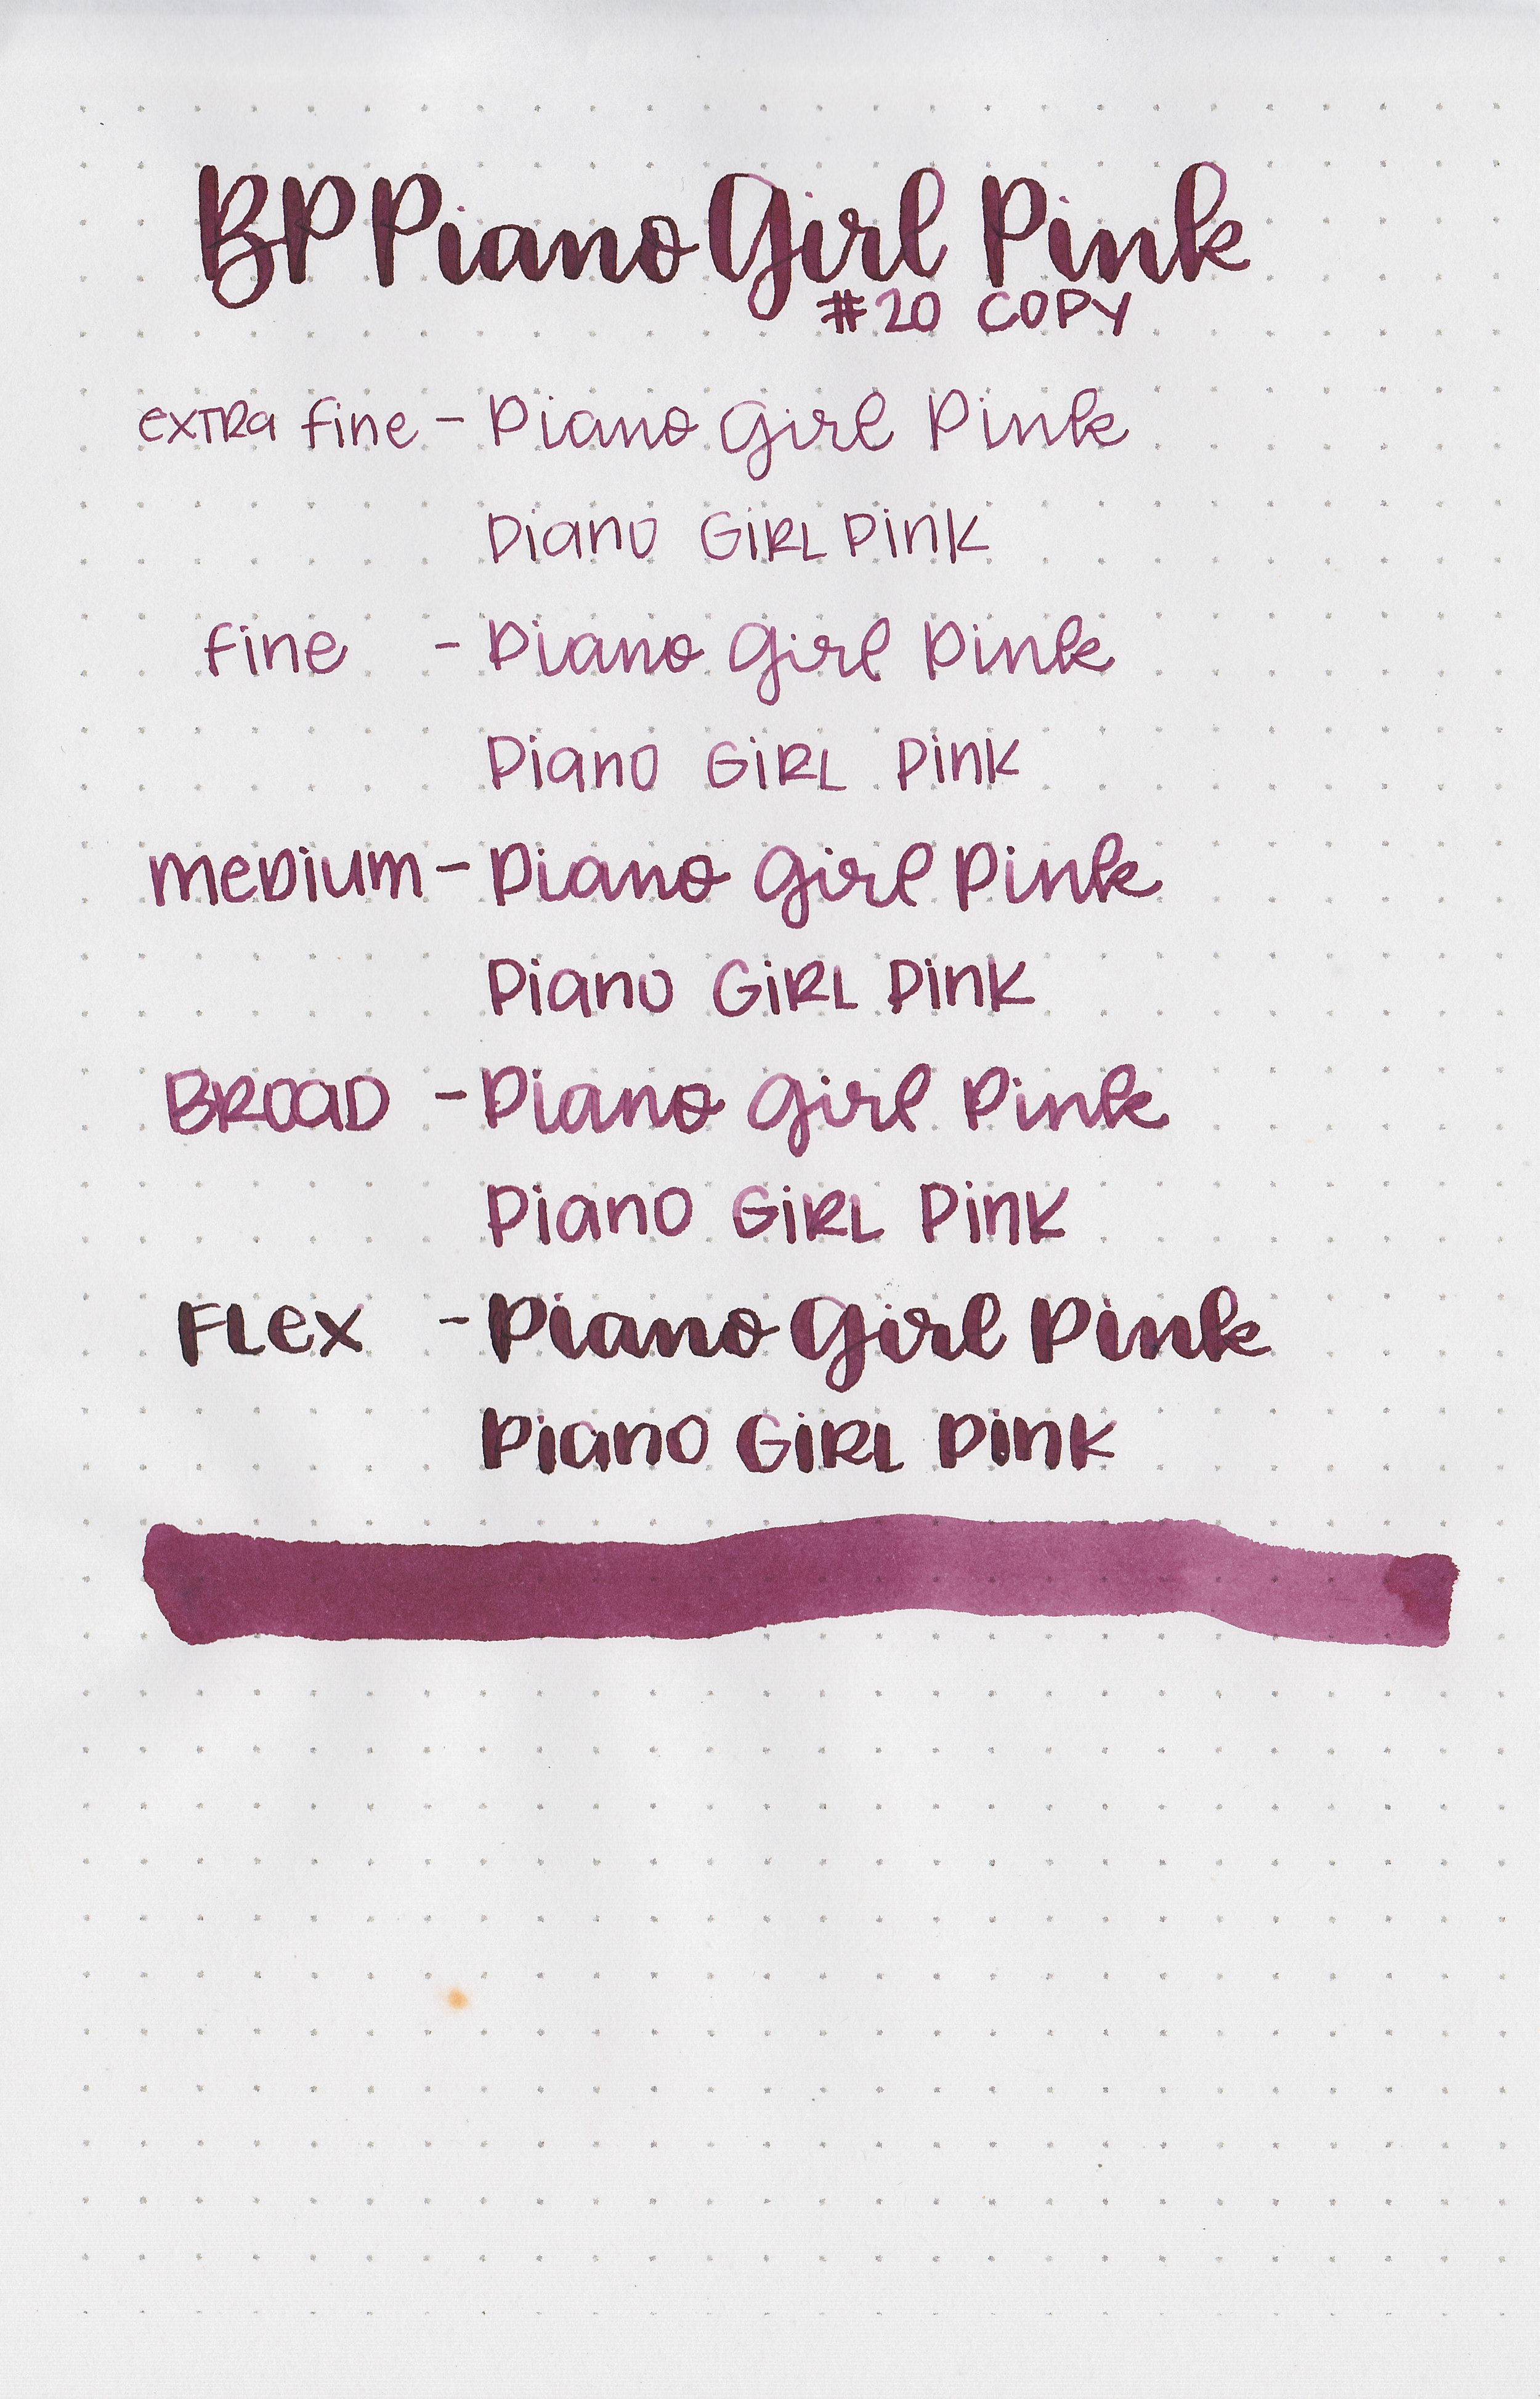 BP Piano Girl Pink
#20 COPY
exTRa fine - Piano Girl Pink
Piano GiRL Pink
fine - Piano Girl Pink
Piano GiRL Pink
meDium - Piano Girl Pink
Piano GiRL Pink
BROaD - Piano Girl Pink
Piano GiRL Pink
FLex - Piano Girl Pink
Piano GiRL Pink